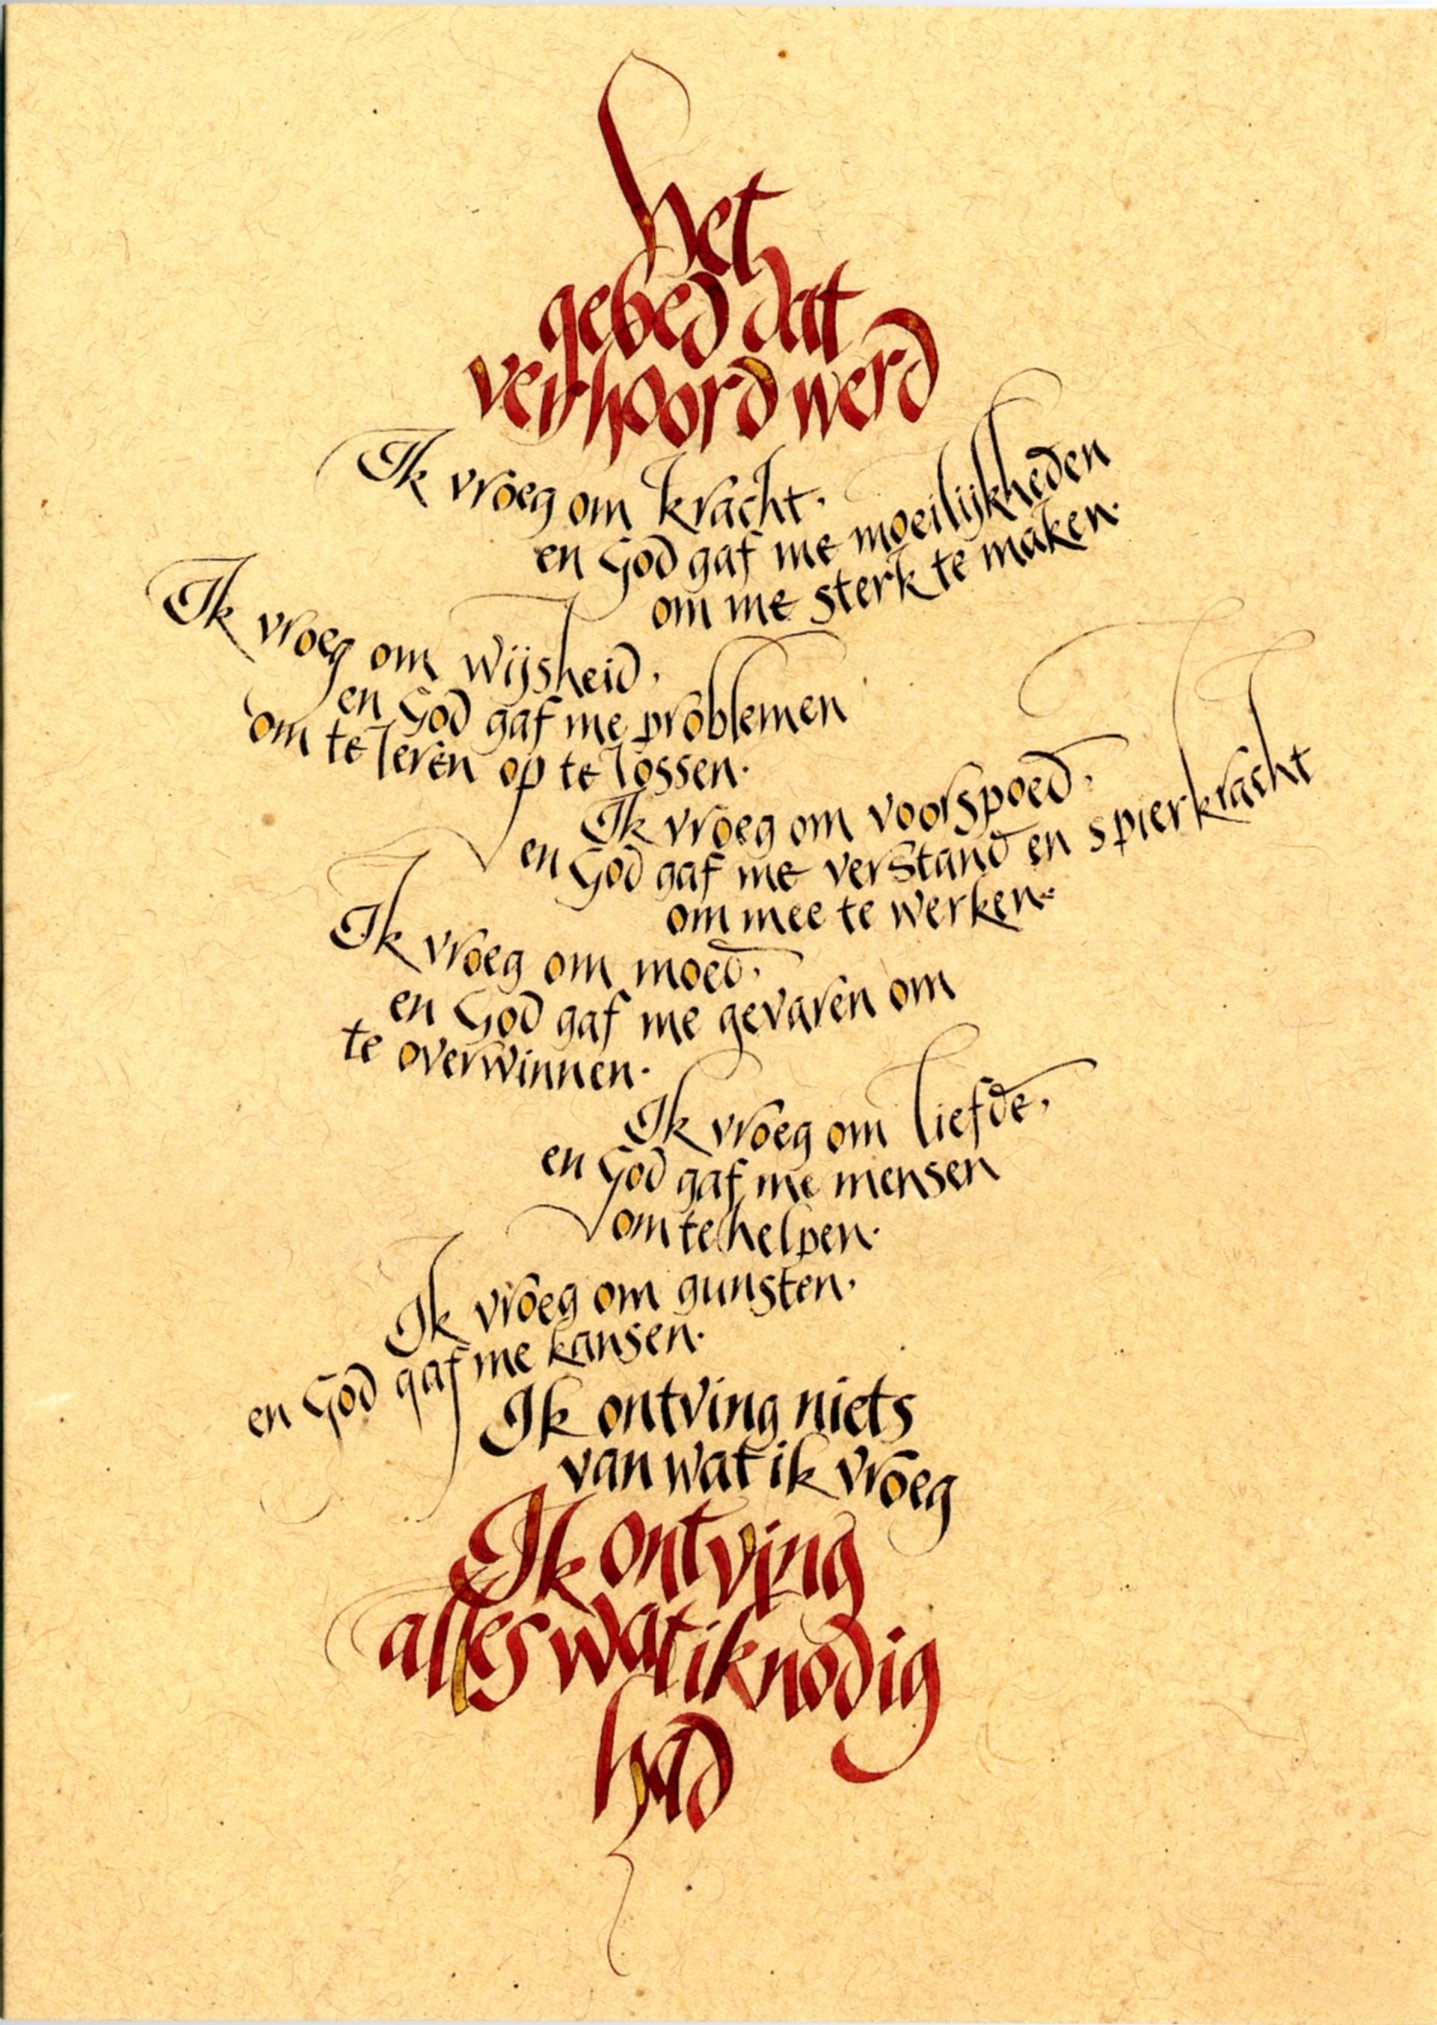 het
gebed dat
verhoord werd
Ik vroeg om kracht,
en God gaf me moeilijkheden
om me sterk te maken.
Ik vroeg om wijsheid,
en God gaf me problemen
om te leren op te lossen.
Ik vroeg om voorspoed,
en God gaf me verstand en spierkracht
om mee te werken.
Ik vroeg om moed,
en God gaf me gevaren om
te overwinnen.
Ik vroeg om liefde,
en God gaf me mensen
om te helpen.
Ik vroeg om gunsten,
en God gaf me kansen.
Ik ontving niets
van wat ik vroeg
Ik ontving
alles wat ik nodig
had